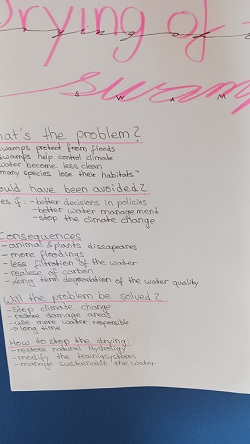 Drying of
swamp
S W A M
hat's the problem?
swamps protect from floods
swamps help control climate
water become less clean
many species lose their habitats"
ould have been avoided?
es if: - better decisions in policies
- better water management
- stop the climate change
Consequences
- animal & plants dissapeares
- more floodings
- less filtration of the water
- realese of carbon
- long term degredation of the water quality
Will the problem be solved?
- stop climate change
- restore damage areas
- use more water responsible
-> long time
How to stop the drying
- restore natural hydrology
- modify the
- manage sustainable the water